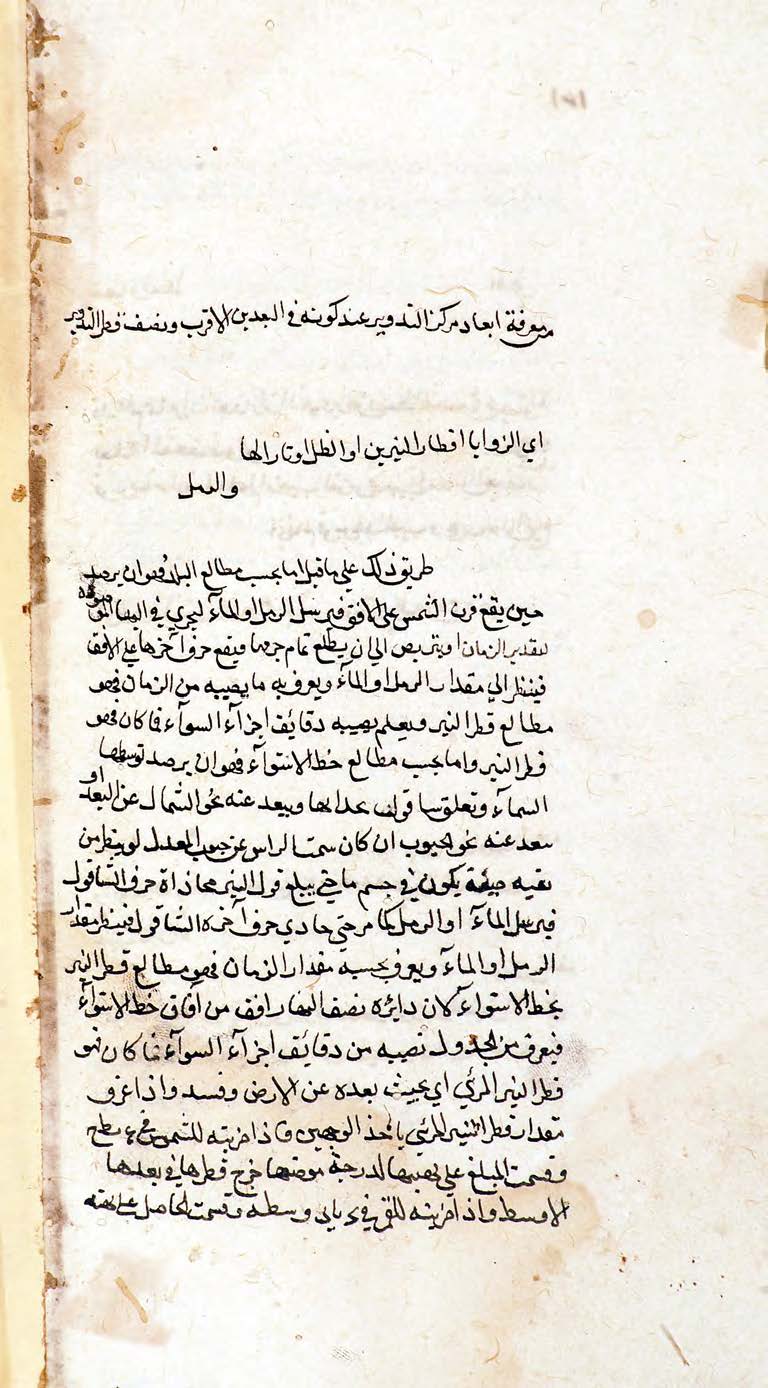 معرفة ابعاد مركز التدوير عند كونه في البعدين الاقرب ونصف قطر التدوير
اي الزوايا اقطار النيرين او الظل اوتار الها
والرمل
طريق ذلك على ما قيل اما بحسب مطالع البلد فهو ان يرصد
حين يقع قرن الشمس على الافق فيرسل الرمل او الماء ليجري في
لتقدير الزمان ويتربص الى ان يطلع تمام جرمها فيقع حرف آخرها على الافق
فينظر الى مقدار الرمل او الماء ويعرف به ما يصيبه من الزمان فهو
مطالع قطر النير ويعلم نصيبه دقائق اجزآء السوآء فما كان فهو
قطر النير واما بحسب مطالع خط الاستوآء فهو ان يرصد توسطها
السمآء وتعلق شاقولين بحدائها ويبعد عنه نحو الشمال عن البعد او
يبعد عنه نحو الجنوب ان كان سمت الراس عن جنوب المعدل لوينظر من
ثقبه ضيقة يكون في جسم ما حتى يبلغ قرن النير محاذاة حرف الشاقول
فيرسل المآء او الرمل كما مر حتى حادي حرف آخره الشاقول فينظر مقدار
الرمل او المآء ويعرف بحسبه مقدار الزمان فهو مطالع قطر النير
بخط الاستوآء لان دايرة نصف النهار افق من آفاق خط الاستوآء
فيعرف من الجدول نصيبه من دقائق اجزآء السوآء فما كان فهو
قطر النير المرئي اي بحيث بعده عن الارض وفسد واذا عرف
مقدار قطر النير المرئي باحد الوجهين فاذا ضربته للشمس في سطح
وقسمت المبلغ على بهتها لدرجة موضعها خرج قطرها في بعدها
الاوسط واذا ضربته للقمر في وسطه وقسمت الحاصل على بهته